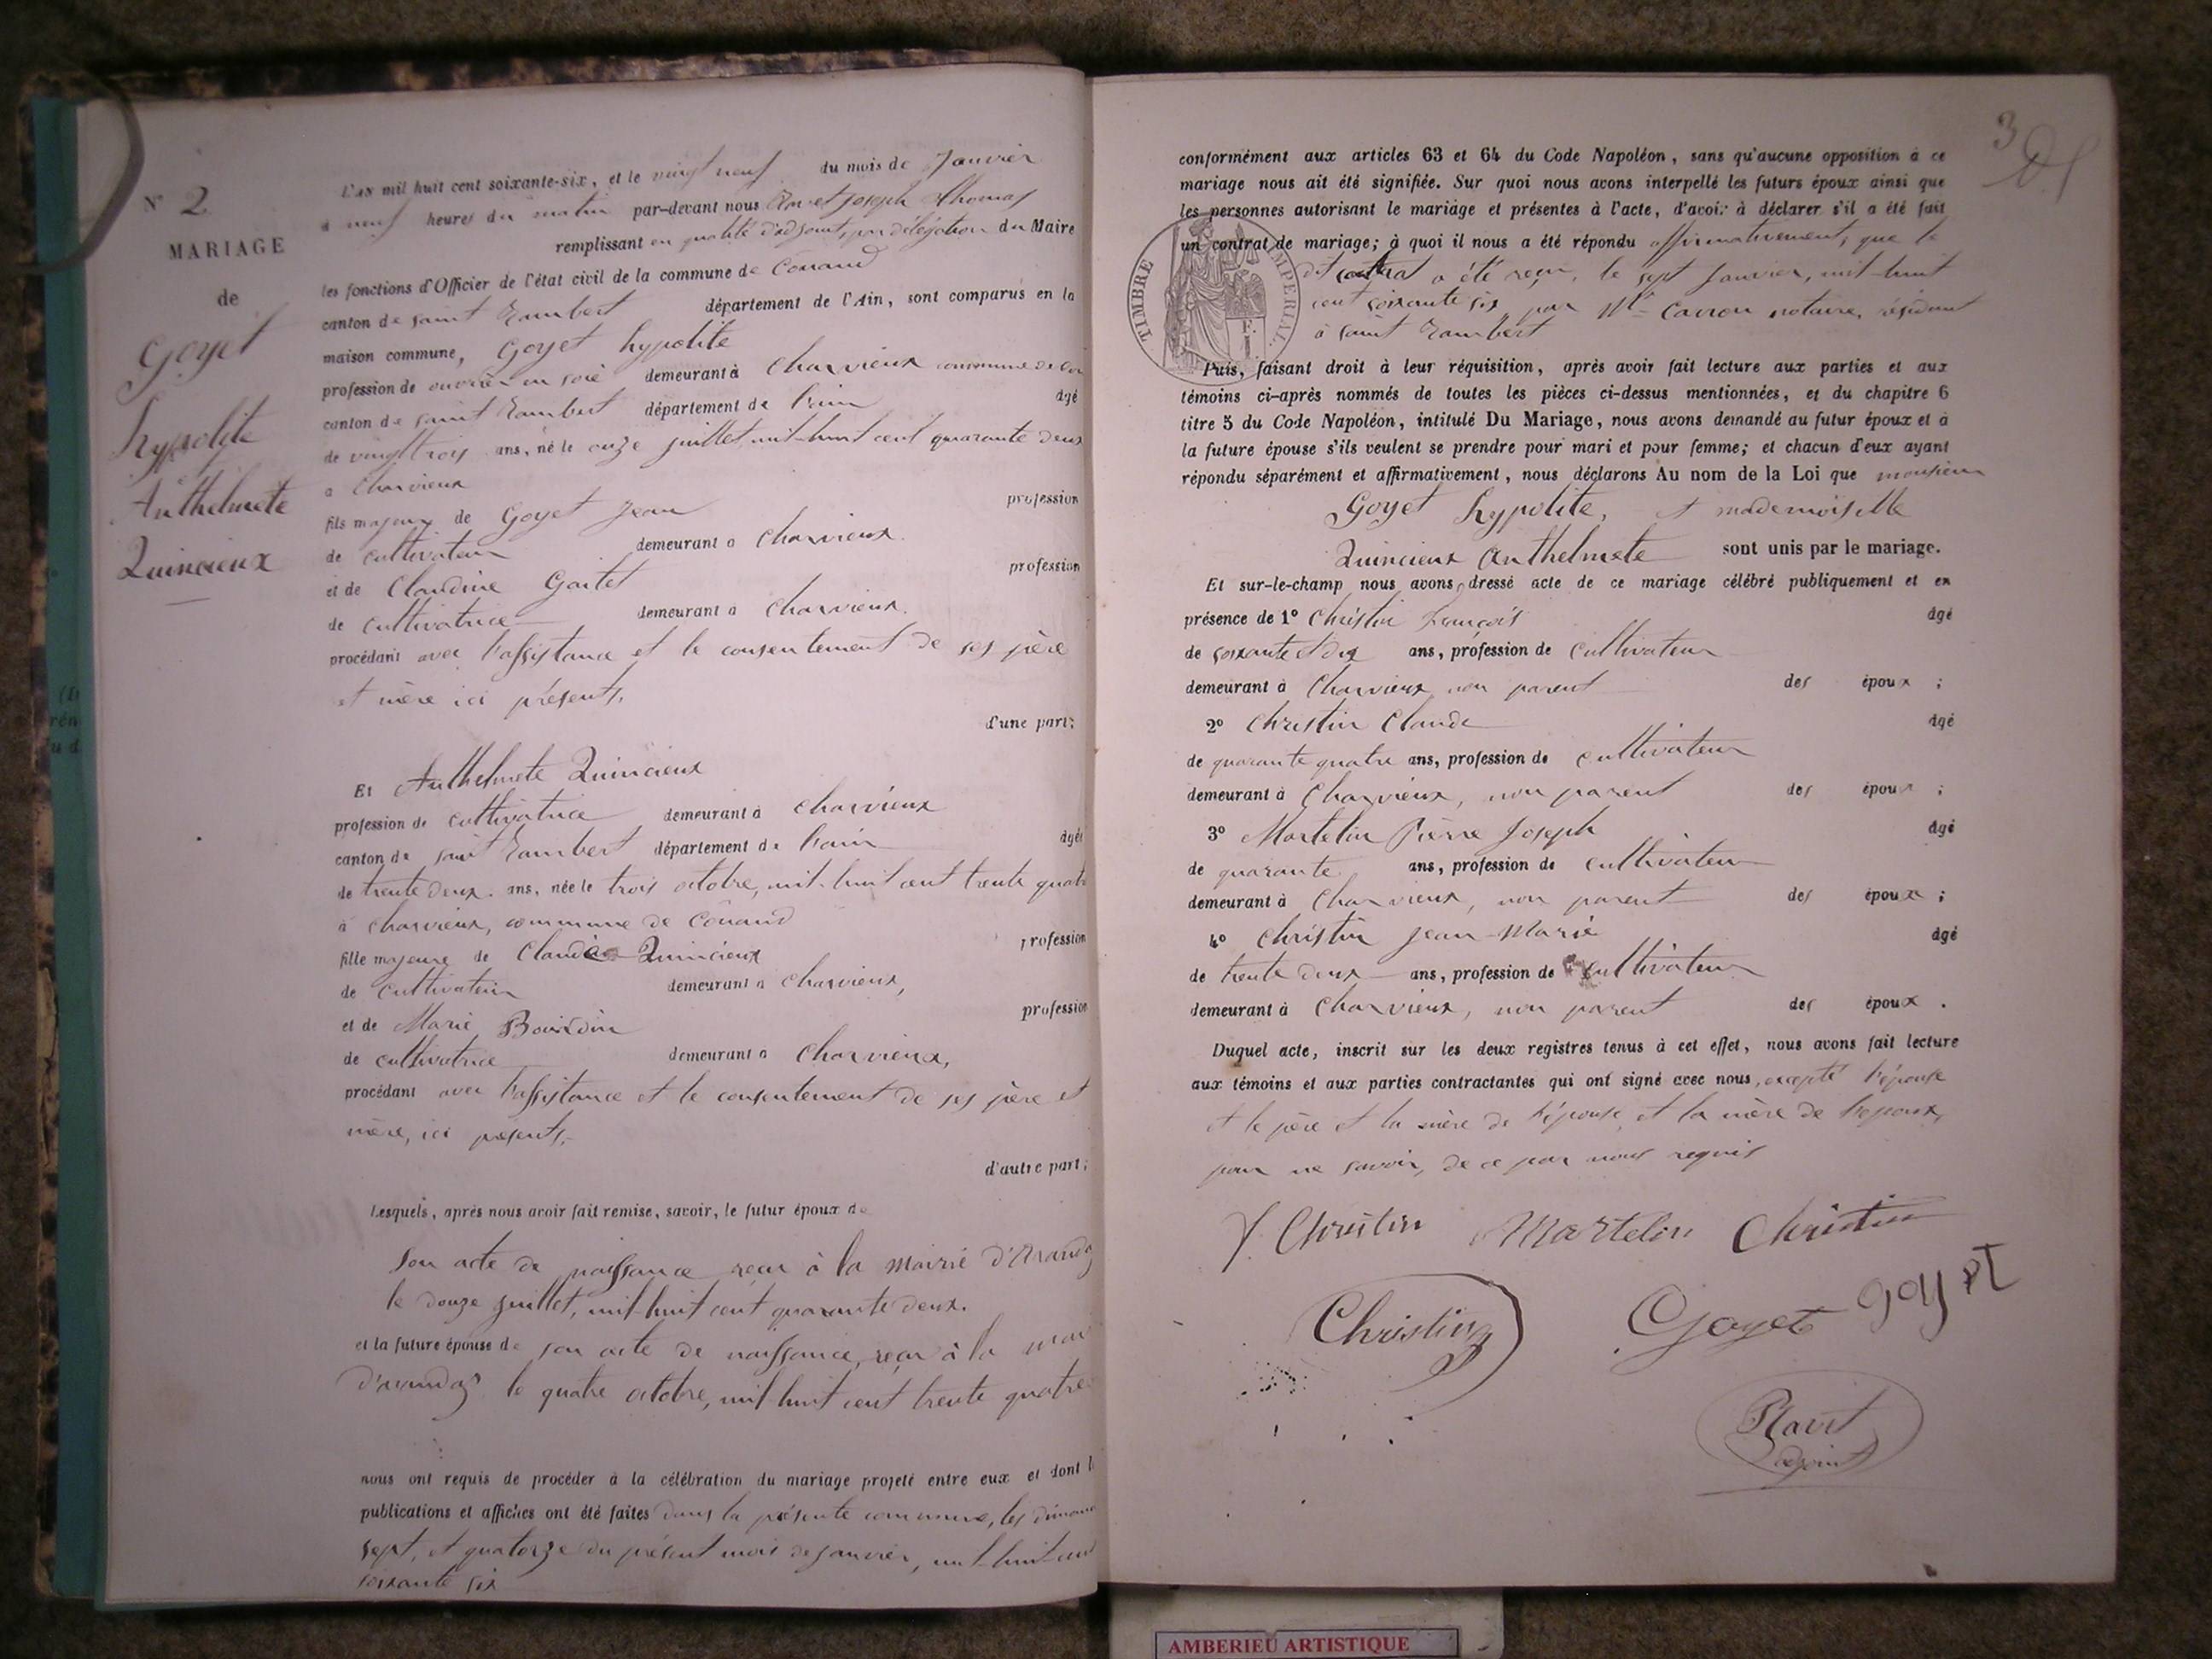 N° 2
MARIAGE
de
Goyet
hypolite
Anthelmete
Quincieux
L'an mil huit cent soixante-six, et le vingt neuf du mois de Janvier
à neuf heures du matin par-devant nous Ravet Joseph Thomas
remplissant en qualité d'adjoint, par délégation du Maire
les fonctions d'Officier de l'état civil de la commune de Conand
canton de saint Rambert département de l'Ain, sont comparus en la
maison commune, Goyet hypolite
profession de ouvrier en soie demeurant à Charvieux commune de
canton de saint Rambert département de l'ain âgé
de vingt trois ans, né le onze juillet, mil-huit cent quarante deux
à Charvieux
fils majeur de Goyet Jean profession
de cultivateur demeurant à Charvieux.
et de Claudine profession
de cultivatrice demeurant à Charvieux.
procédant avec l'assistance et le consentement de ses père
et mère ici présents,
d'une part;
Et Anthelmete Quincieux
profession de cultivatrice demeurant à Charvieux
canton de saint Rambert département de l'ain âgée
de trente deux ans, née le trois octobre, mil-huit cent trente quatre
à Charvieux, commune de Conand
fille majeure de Claude Quincieux profession
de cultivateur demeurant à Charvieux,
et de Marie Bourdin profession
de cultivatrice demeurant à Charvieux,
procédant avec l'assistance et le consentement de ses père et
mère, ici présents,
d'autre part;
Lesquels, après nous avoir fait remise, savoir, le futur époux de
son acte de naissance reçu à la Mairie d'Arandas
le douze juillet, mil-huit cent quarante deux.
et la future épouse de son acte de naissance, reçu à la
d'arandas le quatre octobre, mil-huit cent trente quatre
nous ont requis de procéder à la célébration du mariage projeté entre eux et dont
publications et affiches ont été faites dans la présente commune, les
sept, et quatorze du présent mois de Janvier, mil-huit-cent
soixante six
3
conformément aux articles 63 et 64 du Code Napoléon, sans qu'aucune opposition à ce
mariage nous ait été signifiée. Sur quoi nous avons interpellé les futurs époux ainsi que
les personnes autorisant le mariage et présentes à l'acte, d'avoir à déclarer s'il a été fait
un contrat de mariage; à quoi il nous a été répondu affirmativement, que le
dit contrat a été reçu, le sept Janvier, mil-huit
cent soixante six, par Me notaire, résidant
à saint Rambert
TIMBRE IMPERIAL.
Puis, faisant droit à leur réquisition, après avoir fait lecture aux parties et aux
témoins ci-après nommés de toutes les pièces ci-dessus mentionnées, et du chapitre 6
titre 5 du Code Napoléon, intitulé Du Mariage, nous avons demandé au futur époux et à
la future épouse s'ils veulent se prendre pour mari et pour femme; et chacun d'eux ayant
répondu séparément et affirmativement, nous déclarons Au nom de la Loi que monsieur
Goyet hypolite, et mademoiselle
Quincieux Anthelmete sont unis par le mariage.
Et sur-le-champ nous avons dressé acte de ce mariage célébré publiquement et en
présence de 1° Christin François âgé
de soixante et dix ans, profession de cultivateur
demeurant à Charvieux, non parent des époux ;
2° Christin Claude âgé
de quarante quatre ans, profession de cultivateur
demeurant à Charvieux, non parent des époux ;
3° Martelin Pierre Joseph âgé
de quarante ans, profession de cultivateur
demeurant à Charvieux, non parent des époux ;
4° Christin Jean-Marie âgé
de trente deux ans, profession de cultivateur
demeurant à Charvieux, non parent des époux .
Duquel acte, inscrit sur les deux registres tenus à cet effet, nous avons fait lecture
aux témoins et aux parties contractantes qui ont signé avec nous, excepté l'épouse
et le père et la mère de l'épouse, et la mère de l'epoux,
pour ne savoir, de ce par nous requis
f. Christin Martelin Christin
Christin Goyet goyet
Ravet
adjoint
AMBERIEU ARTISTIQUE